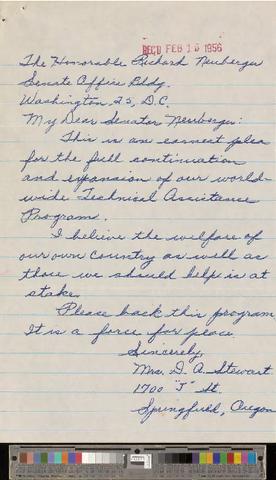 REC'D FEB 16 1956
The Honorable Richard Neuberger
Senate Office Bldg.
Washington 25, D.C.
My Dear Senator Neuberger:
This is an earnest plea
for the full continuation
and expansion of our world-
wide Technical Assistance
Program.
I believe the welfare of
our own country as well as
those we should help is at
stake.
Please back this program
It is a force for peace.
Sincerely,
Mrs. D. A. Stewart
1700 "J" St.
Springfield, Oregon